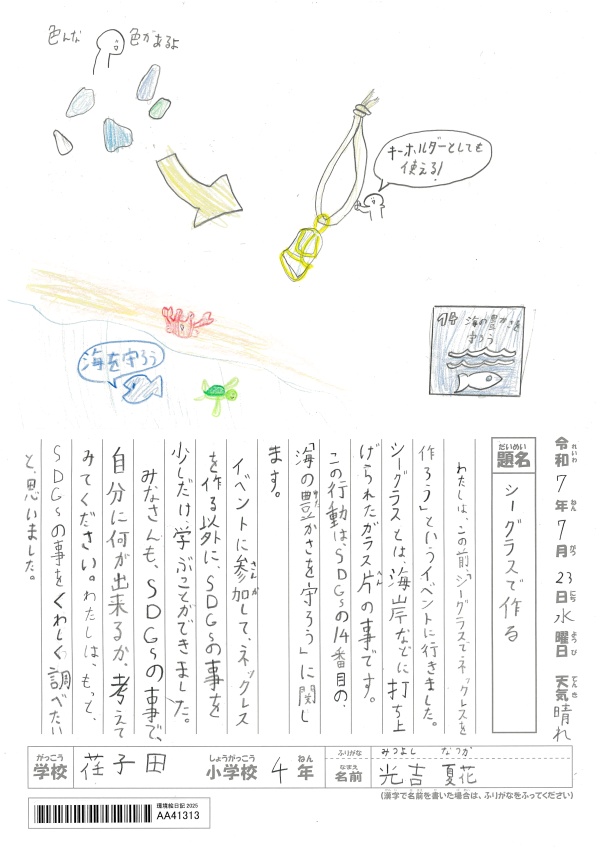 色んな
色があるよ
キーホルダーとしても
使える!
海を守ろう
14 海の豊かさを
守ろう
令和7年7月23日水曜日 天気晴れ
れいわ ねん がつ にち ようび てんき
だいめい
題名
シーグラスで作る
わたしは、この前、「シーグラスでネックレスを
作ろう」というイベントに行きました。
シーグラスとは、海岸などに打ち上
げられたガラス片の事です。
この行動は、SDGsの14番目の、
「海の豊かさを守ろう」に関し
ます。
イベントに参加して、ネックレス
を作る以外に、SDGsの事を
少しだけ、学ぶことができました。
みなさんも、SDGsの事で、
自分に何が出来るか、考えて
みてください。わたしは、もっと、
SDGsの事をくわしく調べたい
と、思いました。
がっこう
学校
荏子田
しょうがっこう
小学校
4
ねん
年
ふりがな
みつよし なつか
なまえ
名前
光吉 夏花
(漢字で名前を書いた場合は、ふりがなをふってください)
環境絵日記 2025
AA41313